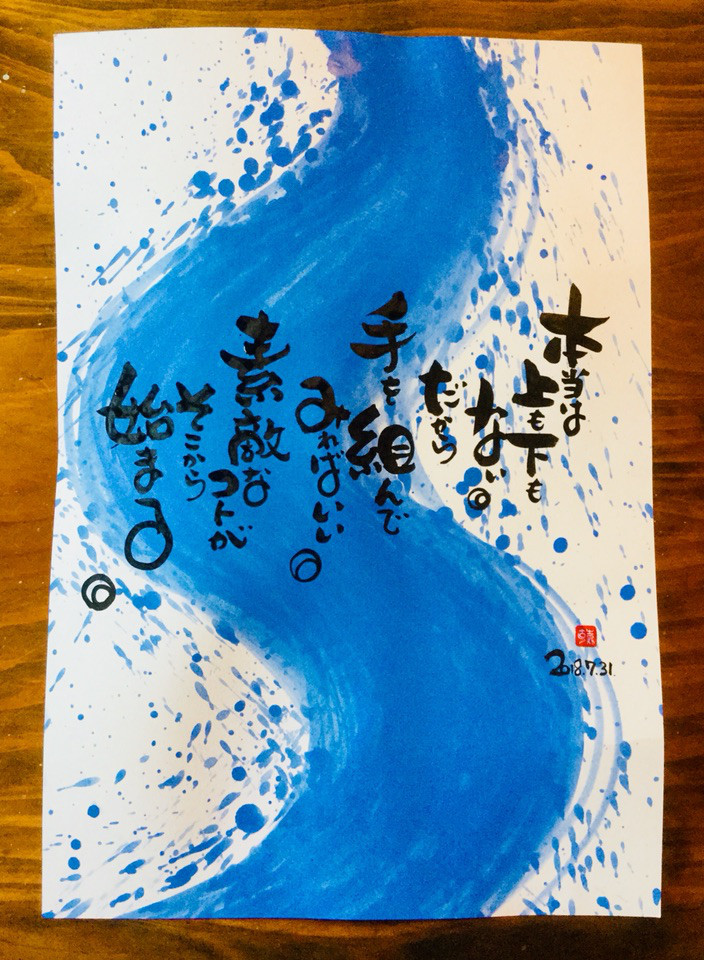 本当は
上も下も
ない。
だから
手を組んで
みればいい。
素敵な
コトが
そこから
始まる。
2018.7.31